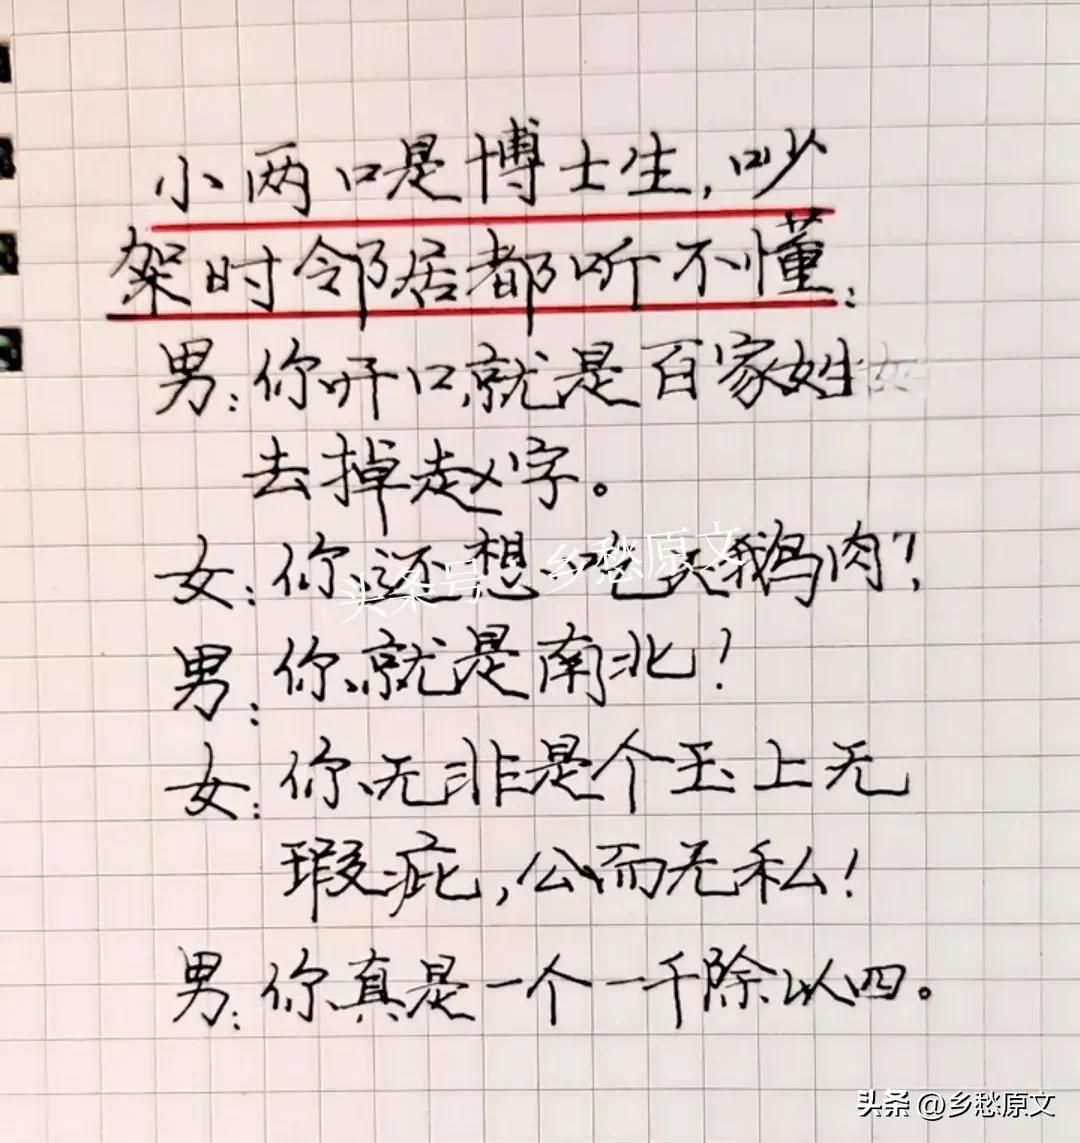 小两口是博士生，吵
架时邻居都听不懂：
男：你开口就是百家姓
去掉赵字。
女：你还想吃天鹅肉？
头条号 乡愁原文
男：你就是南北！
女：你无非是个玉上无
瑕疵，公而无私！
男：你真是一个一千除以四。
头条 @乡愁原文